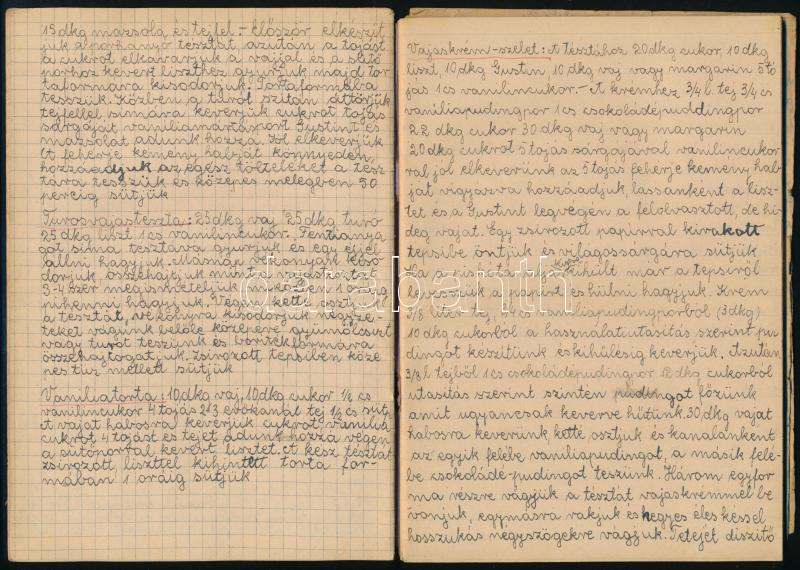 15 dkg mazsola és tejfel.- Először elkészít
juk a porhanyó tésztát azután a tojást
a cukrot elkavarjuk a vajjal és a sütő
porhoz kevert liszthez gyurjuk majd tor
taformára kisodorjuk. Tortaformába
tesszük. Közben a turót szitán áttörjük
tejfellel simára keverjük cukrot tojás
sárgáját vaniliamártásport Gustint és
mazsolát adunk hozzá. Jól elkeverjük
A fehérje kemény habját könnyedén
hozzáadjuk az egész tölteléket a tész
tára tesszük és közepes melegben 50
percig sütjük
Turosvajastészta: 25 dkg vaj 25 dkg turó
25 dkg liszt 1 cs vanilincukor. Fenti anya
got sima tésztává gyurjuk és egy éjjel
állni hagyjuk. Másnap vékonyak kiso
dorjuk, összehajtjuk mint a vajastésztát
3-4 szer megismételjük miközben 1 óráig
pihenni hagyjuk. Végül ketté osztjuk
a tésztát, vékonyra kisodorjuk négyze-
teket vágunk belőle közepére gyümölcsízt
vagy turót teszünk és boritékformára
összehajtogatjuk. Zsirozott tepsiben köze
pes tűz mellett sütjük
Vaniliatorta: 10 dkg vaj, 10 dkg cukor 1/2 cs
vanilincukor 4 tojás 2-3 evőkanál tej 1/2 cs süt
A vajat habosra keverjük cukrot vanilia
cukrot 4 tojást és tejet adunk hozzá végén
a sütőporral kevert lisztet. A kész tésztát
zsirozott liszttel kihintett torta for-
mában 1 óráig sütjük
Vajaskrém-szelet: A tésztához 20 dkg cukor, 10 dkg
liszt, 10 dkg Gustin 10 dkg vaj vagy margarin 5 to
jás 1 cs vanilincukor.- A krémhez 3/4 l. tej 3/4 cs
vaniliapudingpor 1 cs csokoládépuddingpor
22 dkg cukor 30 dkg vaj vagy margarin
20 dkg cukrot 5 tojás sárgájával vanilincukor
ral jól elkeverünk az 5 tojás fehérje kemény hab
ját vigyázva hozzáadjuk, lassanként a lisz-
tet és a Gustint legvégén a felolvasztott, de hi
deg vajat. Egy zsirozott papirral kirakott
tepsibe öntjük és világossárgára sütjük
Ha a piskóta kihült már a tepsiről
levesszük a papirt és hülni hagyjuk. Krém
3/8 liter tej, 3/4 cs vaniliapudingporból (3 dkg)
10 dkg cukorból a használatiutasitás szerint pu
dingot készitünk és kihülésig keverjük. Azután
3/8 l tejből 1 cs csokoládépudingpor 12 dkg cukorból
utasitás szerint szintén pudingot főzünk
amit ugyancsak keverve hütünk. 30 dkg vajat
habosra keverünk, ketté osztjuk és kanalanként
az egyik felébe vaniliapudingot, a másik felé-
be csokoládé-pudingot teszünk. Három egyfor
ma részre vágjuk a tésztát vajaskrémmel be
vonjuk, egymásra rakjuk és hegyes éles késsel
hosszukás négyszögekre vágjuk. Tetejét diszitő